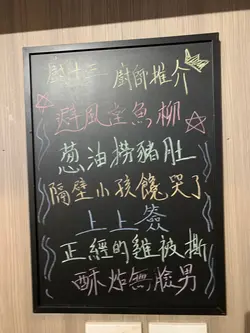 廚師推介
避風塘魚柳
葱油撈豬肚
隔壁小孩饞哭了
上上簽
正經的雞被撕
酥炸無臉男